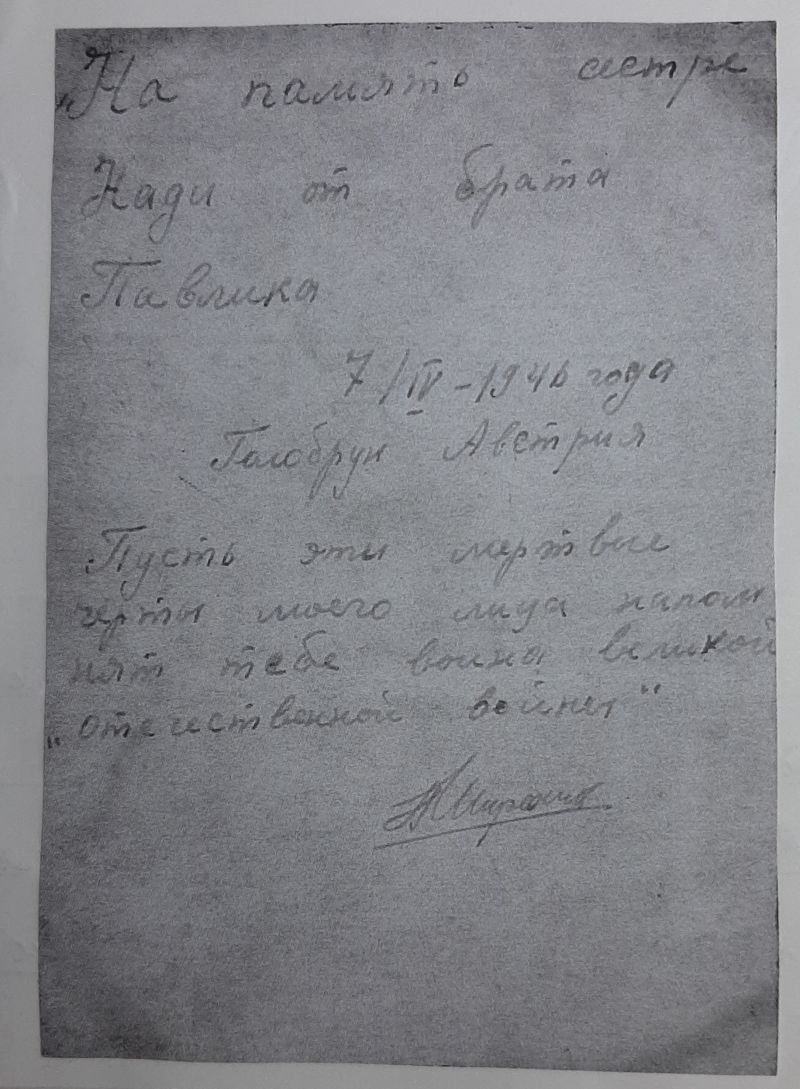 „На память сестре
Нади от брата
Павлика
7/IV-1946 года
Голобрун Австрия
Пусть эти мертвые
черты моего лица напом
нят тебе воина великой
„отечественной войны"